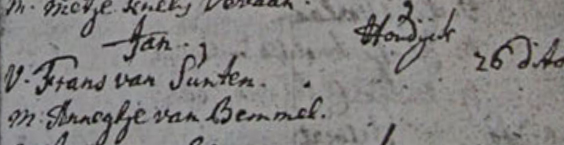 m. Metje
Jan. Hondijck 26 dito
V. Frans van Sunten.
m. Annegtje van Bemmel.